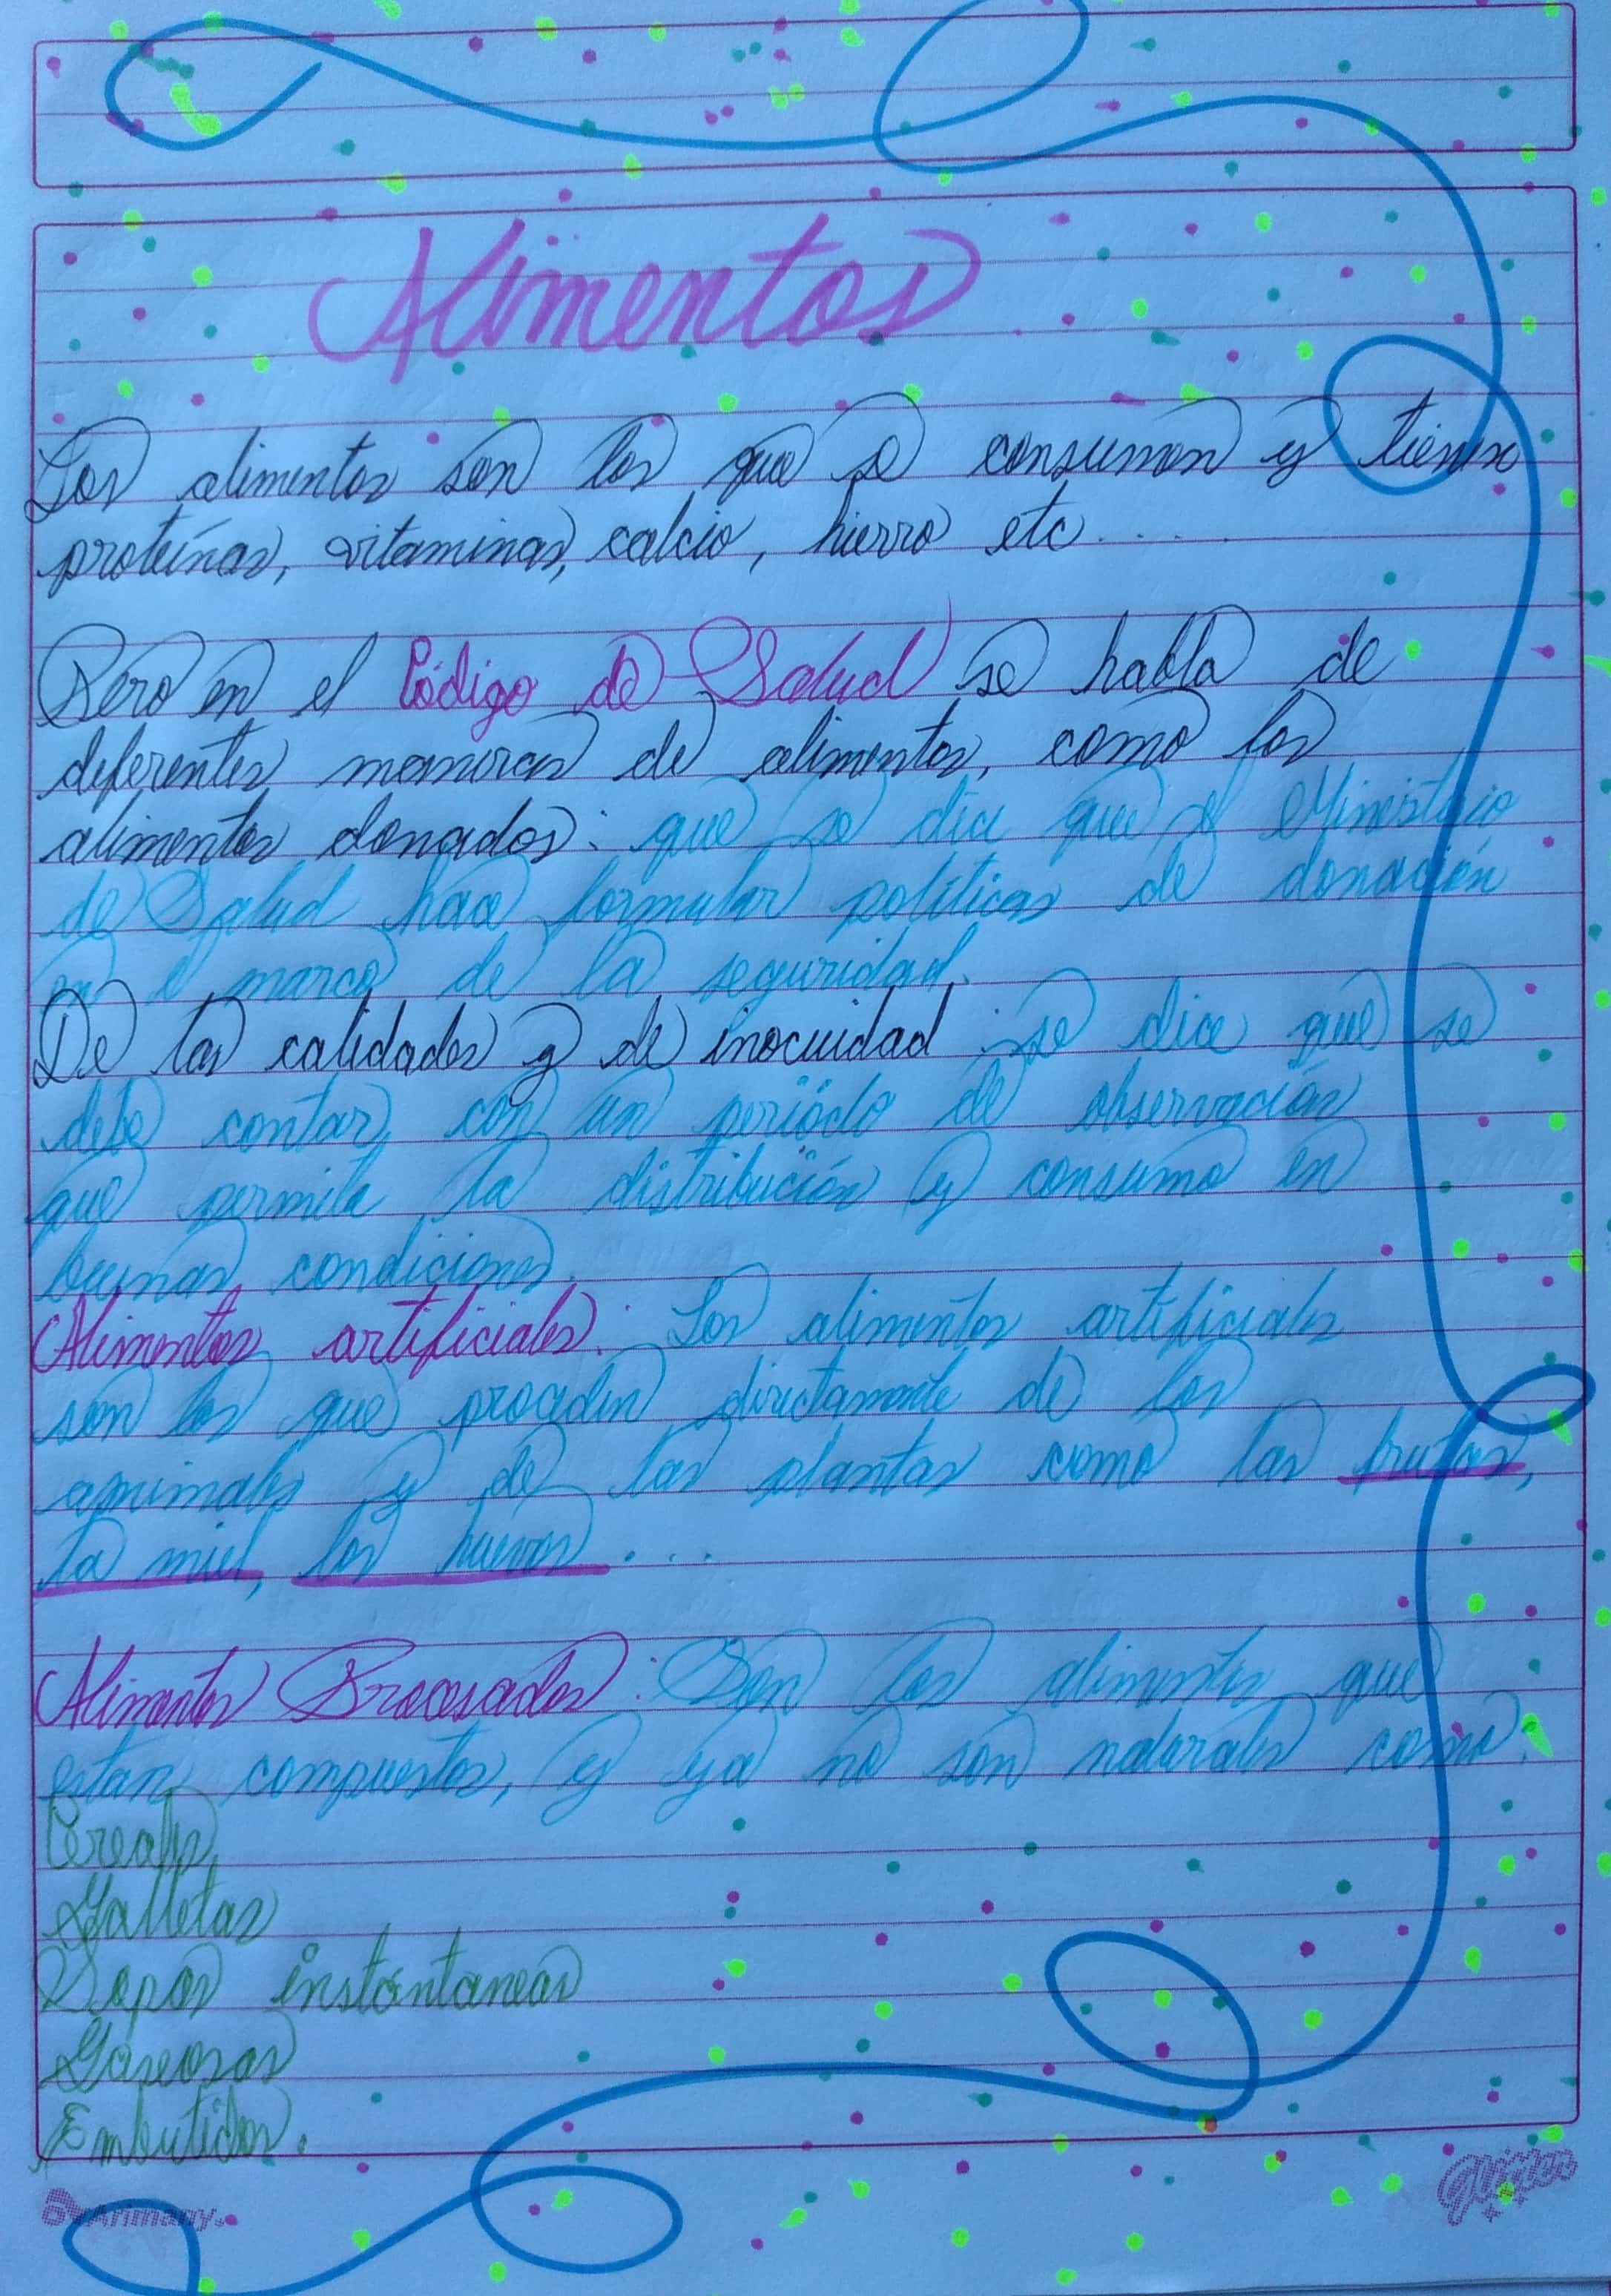 Alimentos
Los alimentos son los que se consumen y tienen
proteínas, vitaminas, calcio, hierro etc....
Pero en el Código de Salud se habla de
diferentes maneras de alimentos, como los
alimentos donados: que se dice que el Ministerio
de Salud hace formular políticas de donación
en el marco de la seguridad.
De las calidades y de inocuidad: se dice que se
debe contar con un periódo de observación
que permita la distribución y consumo en
buenas condiciones.
Alimentos artificiales: Los alimentos artificiales
son los que proceden directamente de los
animales y de las plantas como las frutas,
la miel, los huevos....
Alimentos Procesados: Son los alimentos que
estan compuestos, y ya no son naturales como:
Cereales
Galletas
Sopas instantaneas
Gaseosas
Embutidos.
Arimany
Glitter